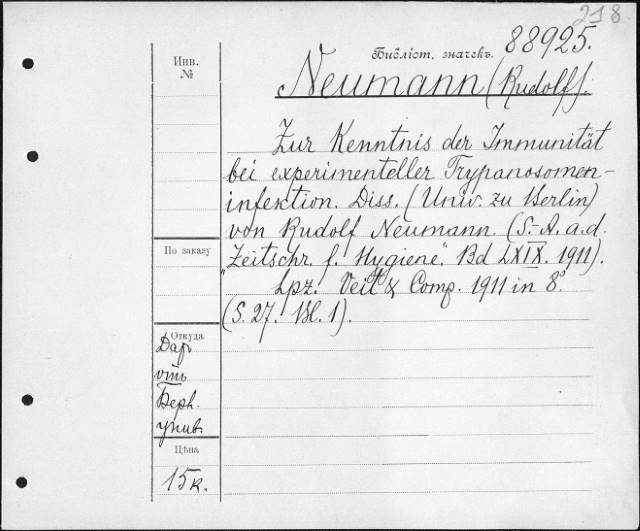 218
Инв.
№
Библіот. значекъ. 88925.
Neumann (Rudolf).
Zur Kenntnis der Immunität
bei experimenteller Trypanosomen-
infektion. Diss. (Univ. zu Berlin)
von Rudolf Neumann. (S.-A. a. d.
"Zeitschr. f. Hygiene". Bd LXIX. 1911).
Lpz. Veit & Comp. 1911 in 8°.
(S. 27. Bl. 1).
По заказу
Откуда
Даръ
отъ
Берл.
унив.
Цѣна
15к.